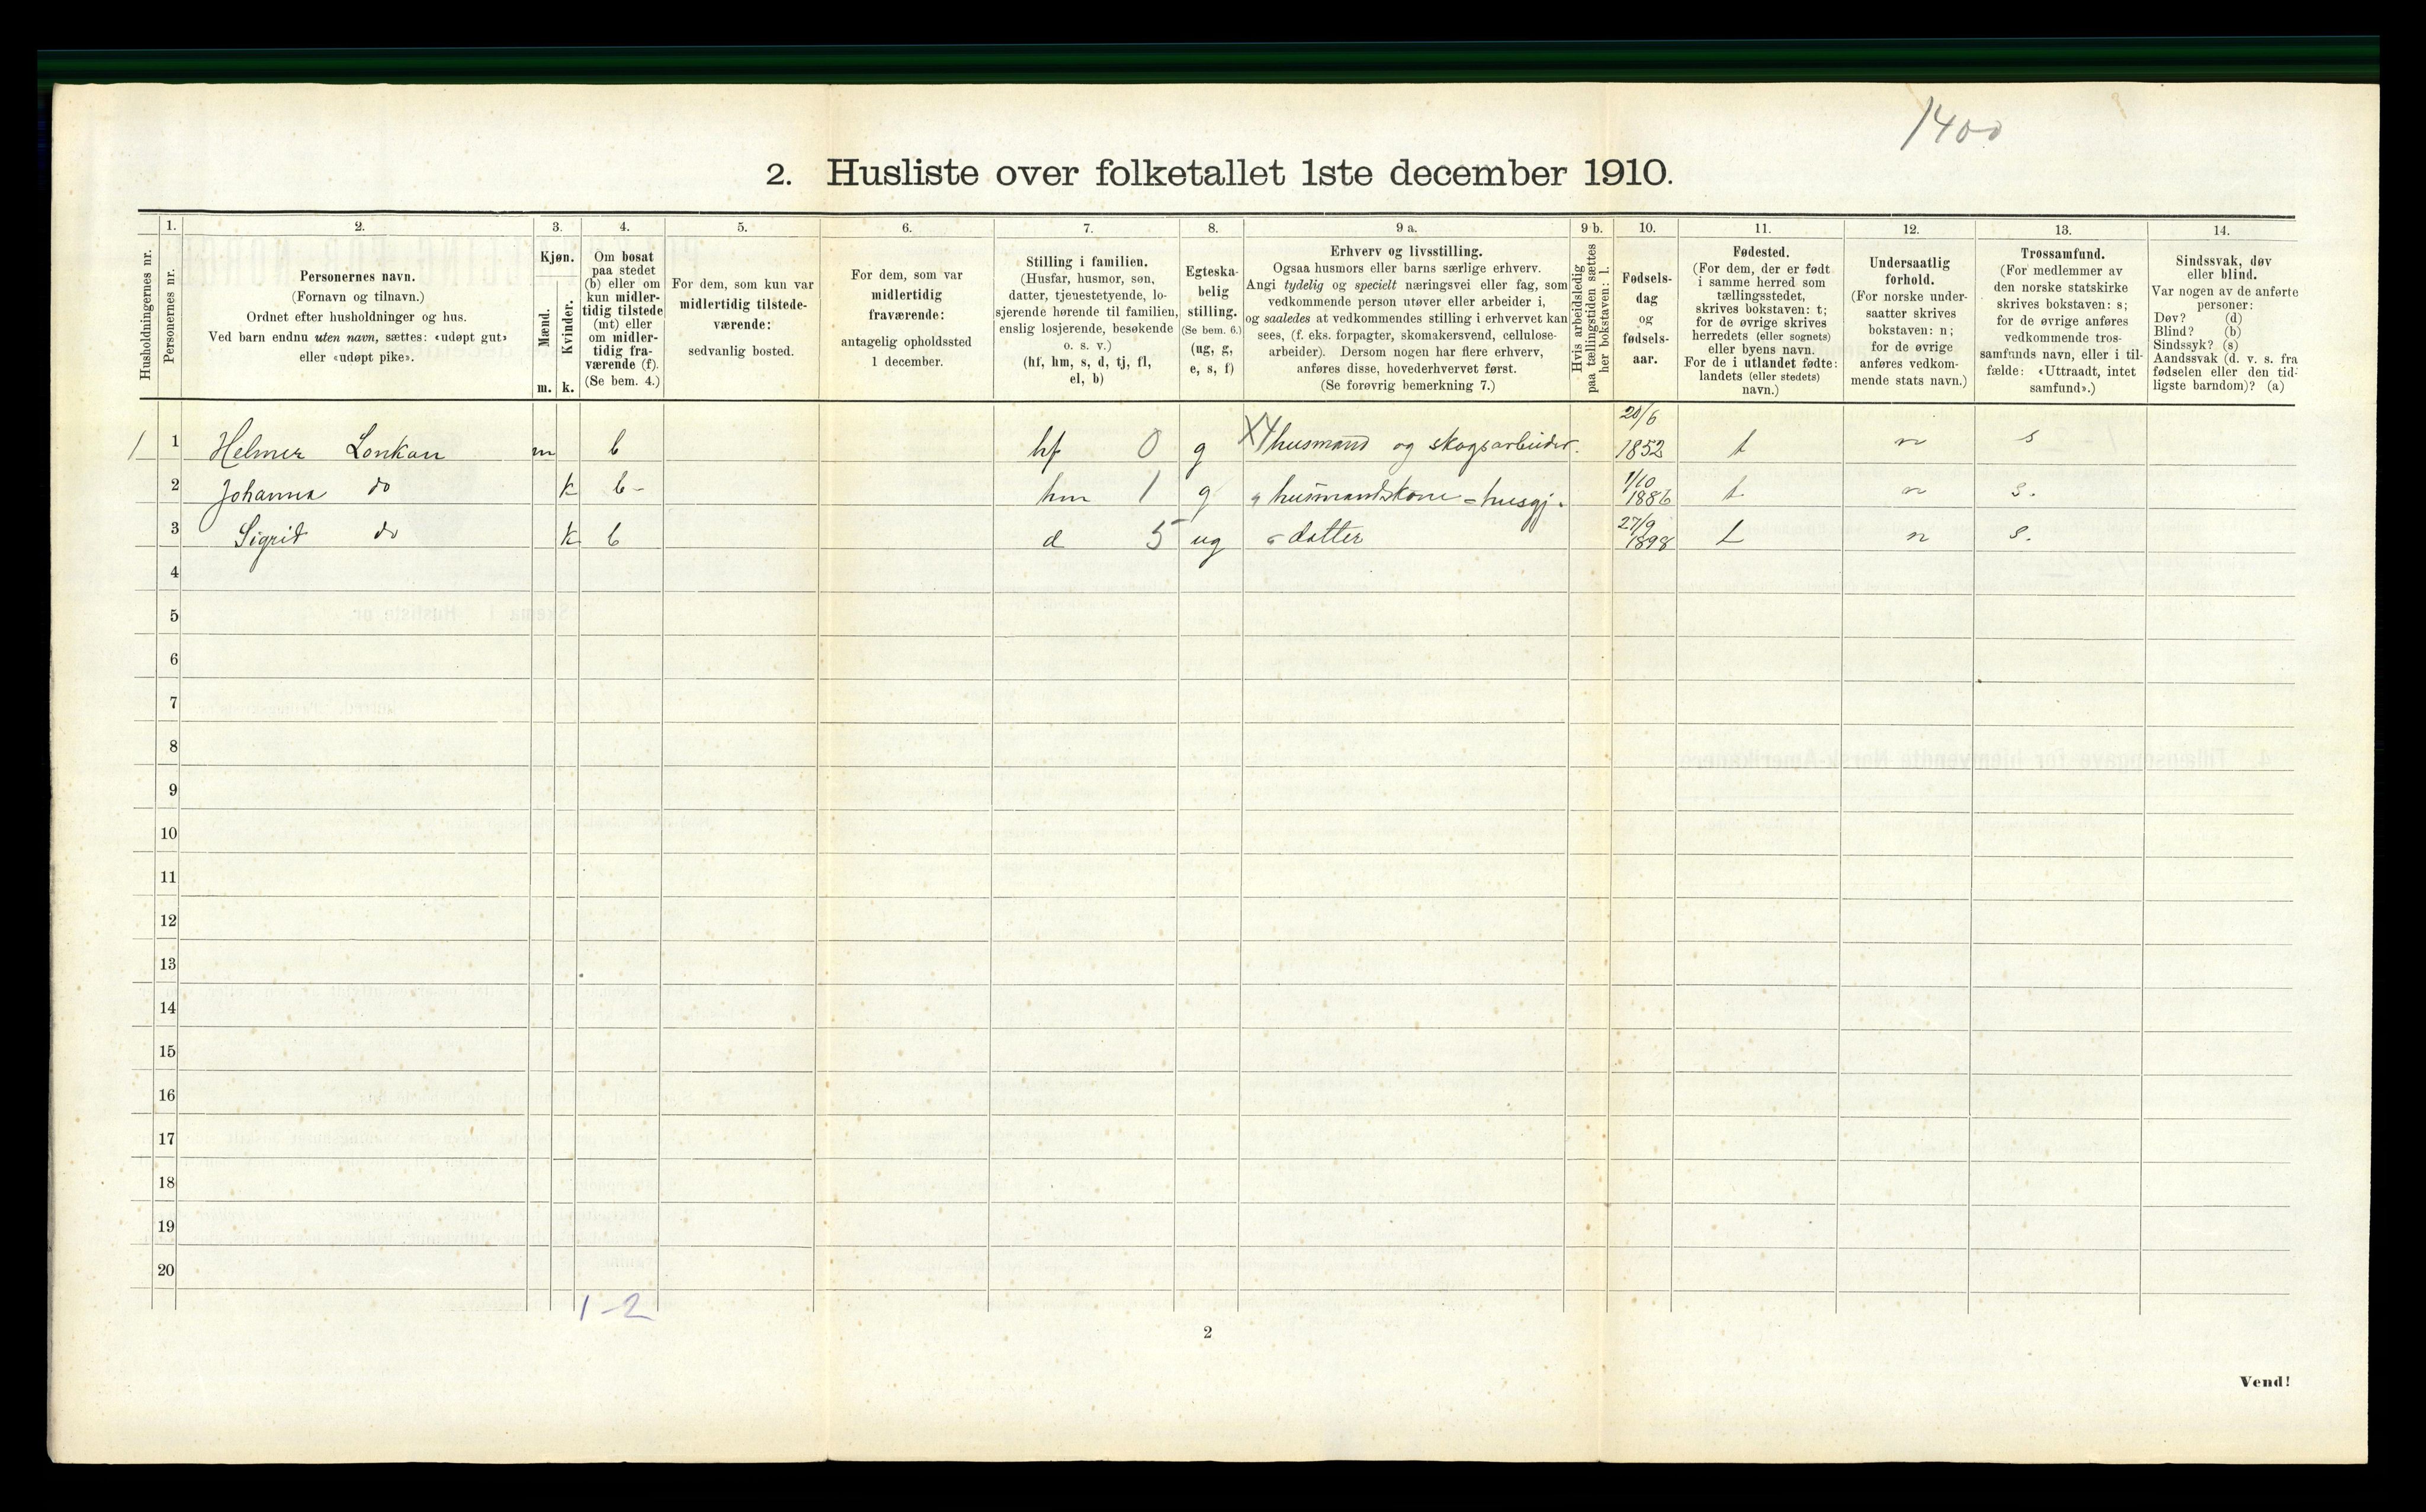 1400
2. Husliste over folketallet 1ste december 1910.
Husholdningernes nr.
1.
Personernes nr.
2.
Personernes navn.
(Fornavn og tilnavn.)
Ordnet efter husholdninger og hus.
Ved barn endnu uten navn, sættes: «udøpt gut»
eller «udøpt pike».
3.
Kjøn.
Mænd.
Kvinder.
m. k.
4.
Om bosat
paa stedet
(b) eller om
kun midler-
tidig tilstede
(mt) eller
om midler-
tidig fra-
værende (f).
(Se bem. 4.)
5.
For dem, som kun var
midlertidig tilstede-
værende:
sedvanlig bosted.
6.
For dem, som var
midlertidig
fraværende:
antagelig opholdssted
1 december.
7.
Stilling i familien.
(Husfar, husmor, søn,
datter, tjenestetyende, lo-
sjerende hørende til familien,
enslig losjerende, besøkende
o. s. v.)
(hf, hm, s, d, tj, fl,
el, b)
8.
Egteska-
belig
stilling.
(Se bem. 6.)
(ug, g,
e, s, f)
9 a.
Erhverv og livsstilling.
Ogsaa husmors eller barns særlige erhverv.
Angi tydelig og specielt næringsvei eller fag, som
vedkommende person utøver eller arbeider i,
og saaledes at vedkommendes stilling i erhvervet kan
sees, (f. eks. forpagter, skomakersvend, cellulose-
arbeider). Dersom nogen har flere erhverv,
anføres disse, hovederhvervet først.
(Se forøvrig bemerkning 7.)
9 b.
Hvis arbeidsledig
paa tællingstiden sættes
her bokstaven: l.
10.
Fødsels-
dag
og
fødsels-
aar.
11.
Fødested.
(For dem, der er født
i samme herred som
tællingsstedet,
skrives bokstaven: t;
for de øvrige skrives
herredets (eller sognets)
eller byens navn.
For de i utlandet fødte:
landets (eller stedets)
navn.)
12.
Undersaatlig
forhold.
(For norske under-
saatter skrives
bokstaven: n;
for de øvrige
anføres vedkom-
mende stats navn.)
13.
Trossamfund.
(For medlemmer av
den norske statskirke
skrives bokstaven: s;
for de øvrige anføres
vedkommende tros-
samfunds navn, eller i til-
fælde: «Uttraadt, intet
samfund».)
14.
Sindssvak, døv
eller blind.
Var nogen av de anførte
personer:
Døv? (d)
Blind? (b)
Sindssyk? (s)
Aandssvak (d. v. s. fra
fødselen eller den tid-
ligste barndom)? (a)
1 1 Helmer Lonkan m b hf 0 g husmand og skogsarbeider. 20/6 1852 t n s
2 Johanna do k b - hm 1 g husmandskone = husgj. 1/10 1886 t n s.
3 Sigrid do k b d 5 ug datter 27/9 1898 t n s.
4
5
6
7
8
9
10
11
12
13
14
15
16
17
18
19
20
1-2
2
Vend!